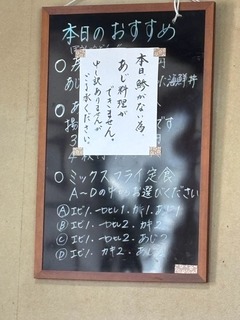 本日のおすすめ
本日鯵がない為、
あじ料理が
できません。
申し訳ありませんが
ご了承ください。
海鮮丼
○ミックスフライ定食
A～Dの中からお選びください
Ⓐエビ1. ヒレ1. カキ1. あじ1
Ⓑエビ1. ヒレ2. カキ2
Ⓒエビ1. ヒレ2. あじ2
Ⓓエビ1. カキ2. あじ2